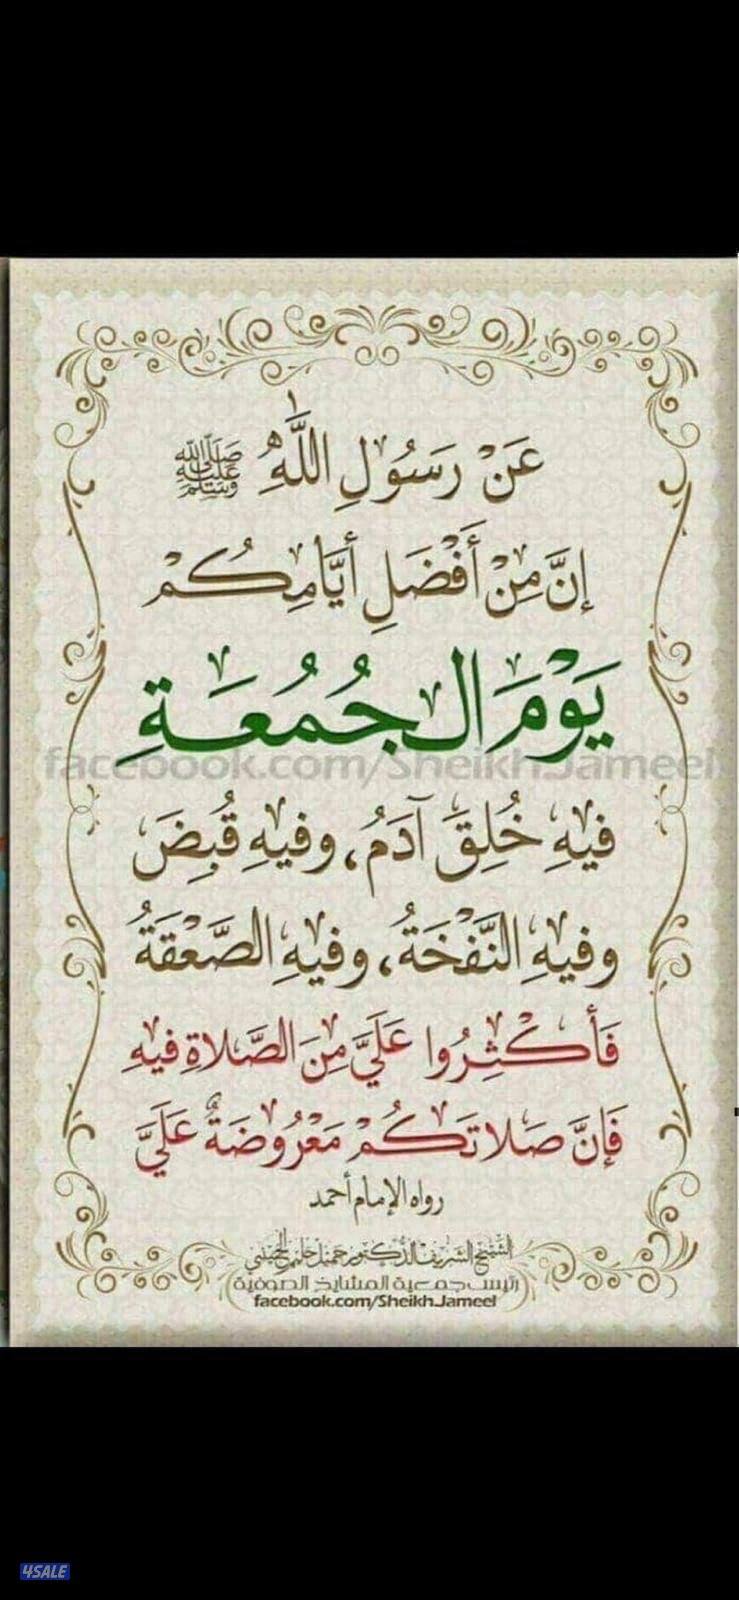 عَنْ رَسُولِ اللَّهِ ﷺ
إنَّ مِنْ أَفْضَلِ أيَّامِكُمْ
يَوْمَ الجُمُعَةِ
facebook.com/Sheikh.Jameel
فيهِ خُلِقَ آدَمُ، وفيهِ قُبِضَ
وفيهِ النَّفْخَةُ، وفيهِ الصَّعْقَةُ
فَأَكْثِرُوا عَلَيَّ مِنَ الصَّلاةِ فيهِ
فَإنَّ صَلاتَكُمْ مَعْرُوضَةٌ عَلَيَّ
رواه الإمام أحمد
الشيخ الشريف الدكتور جميل حليم الحسيني
رئيس جمعية المشايخ الصوفية
facebook.com/Sheikh.Jameel
4SALE